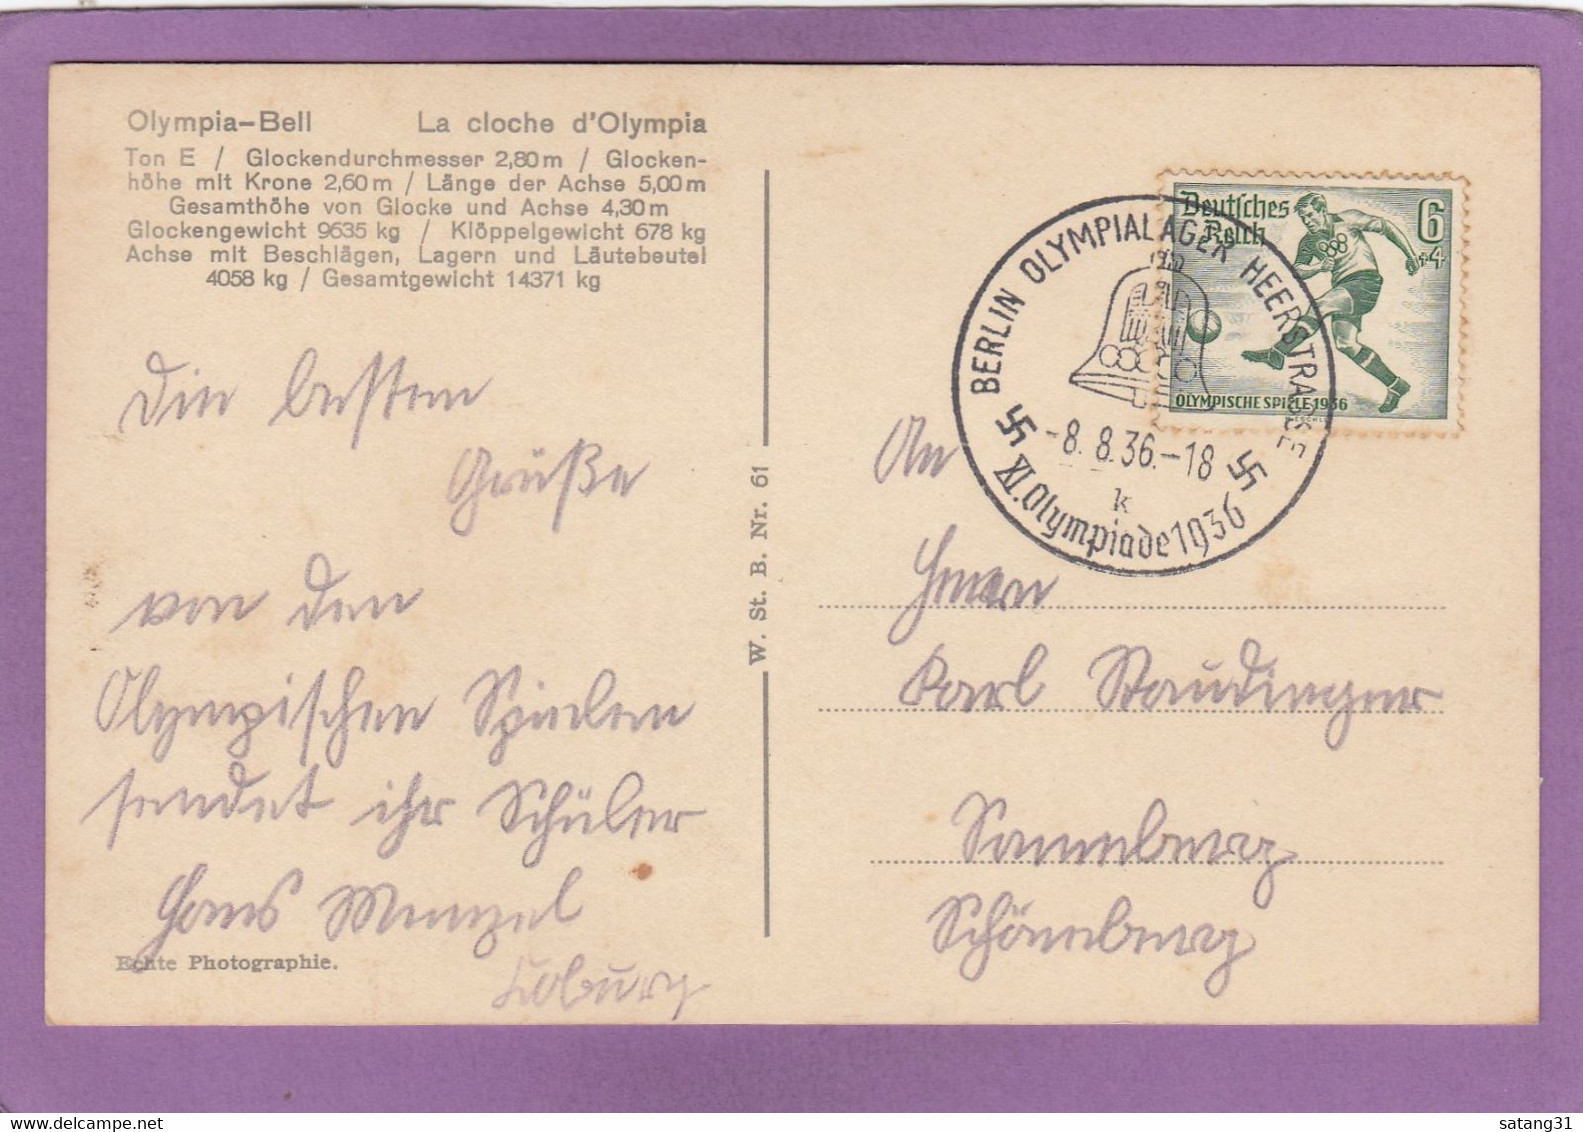 Olympia-Bell La cloche d'Olympia
Ton E / Glockendurchmesser 2,80 m / Glocken-
höhe mit Krone 2,60 m / Länge der Achse 5,00 m
Gesamthöhe von Glocke und Achse 4,30 m
Glockengewicht 9635 kg / Klöppelgewicht 678 kg
Achse mit Beschlägen, Lagern und Läutebeutel
4058 kg / Gesamtgewicht 14371 kg
Die besten
Grüße
von den
Olympischen Spielen
sendet ihr Schüler
Hans Menzel
Coburg
Echte Photographie.
W. St. B. Nr. 61
Deutsches
Reich
6
+4
OLYMPISCHE SPIELE 1936
BERLIN OLYMPIALAGER HEERSTRASSE
-8.8.36.-18
k
XI. Olympiade 1936
An
Herrn
Karl Staudinger
Sonneberg
Schönberg
satang31